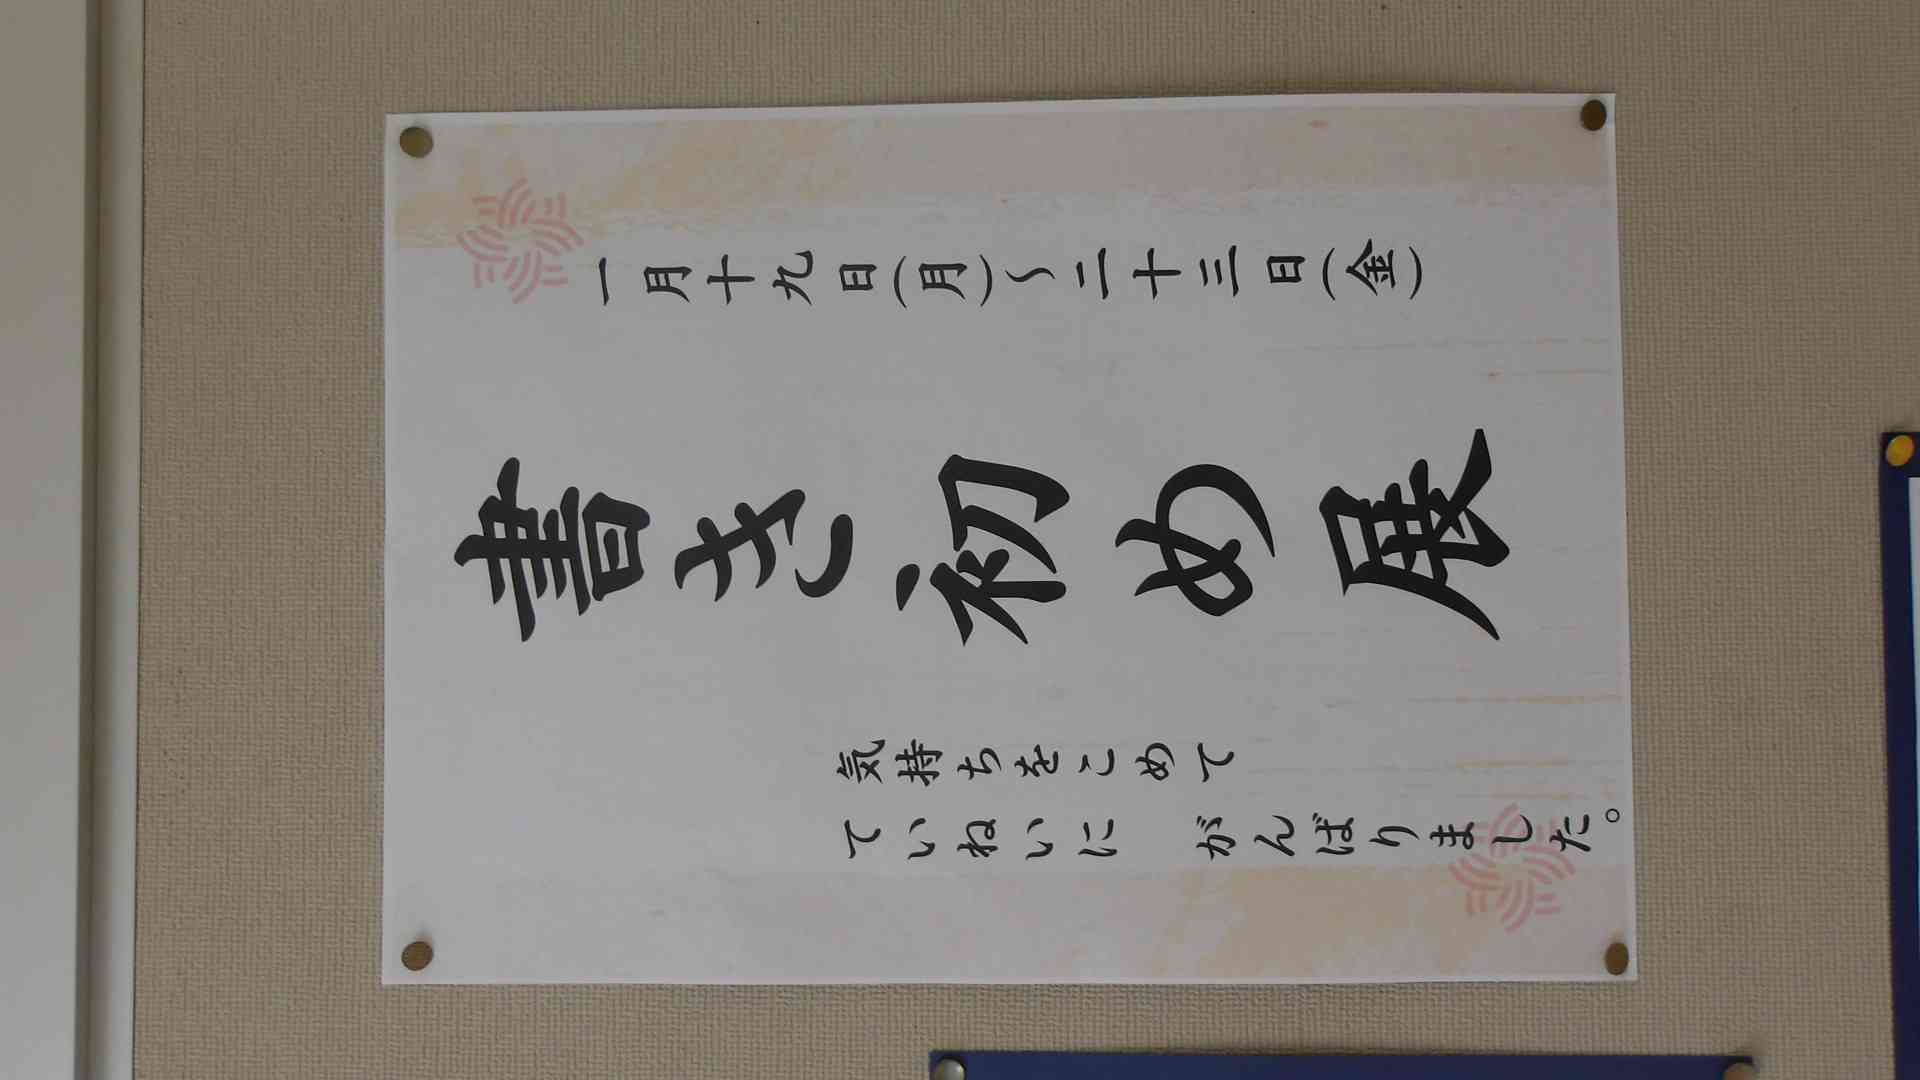 一月十九日(月)〜二十三日(金)
書き初め展
気持ちをこめて
ていねいに　がんばりました。